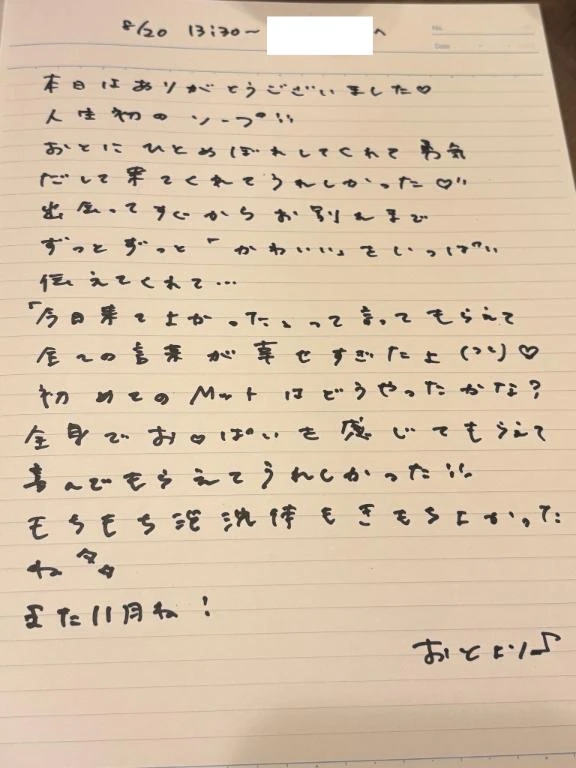 8/20 13:30〜 へ
No.
Date
本日はありがとうございました♡
人生初のソープ!!
おとにひとめぼれしてくれて勇気
だして来てくれてうれしかった♡!!
出会ってすぐからお別れまで
ずっとずっと「かわいい」をいっぱい
伝えてくれて…
「今日来てよかった」って言ってもらえて
全ての言葉が幸せすぎたよ ♡
初めてのMットはどうやったかな?
全身でお♡ぱいを感じてもらえて
喜んでもらえてうれしかった!!
もちもち泡洗体もきもちよかった
ね☆☆
また11月ね!
おとより♪